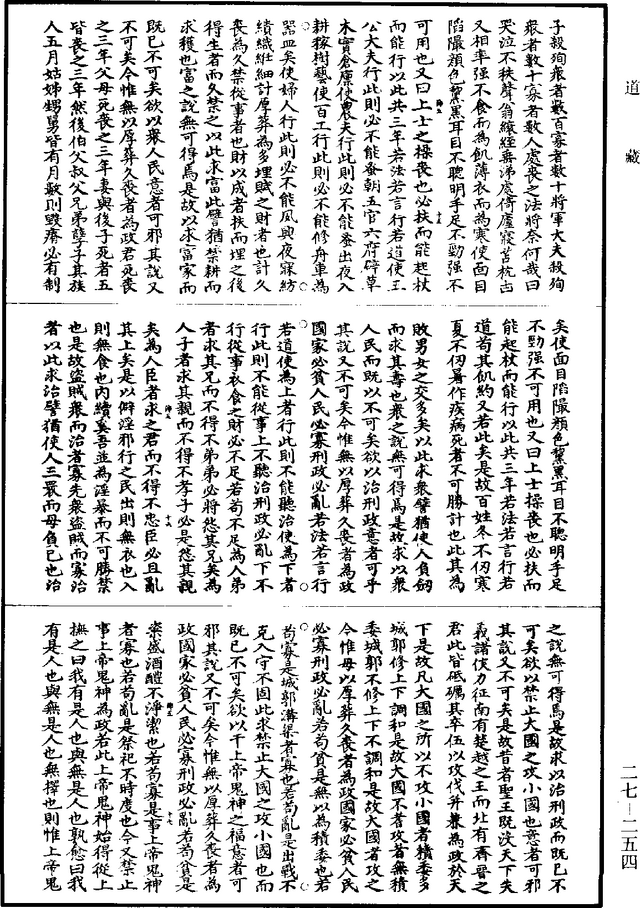 道藏
子殺殉衆者數百寡者數十將軍大夫殺殉
衆者數十寡者數人處喪之法將奈何哉曰
哭泣不秩聲翁縗絰垂涕處倚廬寢苫枕凷
又相率强不食而為飢薄衣而為寒使面目
陷䧟顏色黧黑耳目不聰明手足不勁强不
可用也又曰上士之操喪也必扶而能起杖
而能行以此共三年若法若言行若道使王
公大夫行此則必不能蚤朝五官六府辟草
木實倉廩使農夫行此則必不能蚤出夜入
耕稼樹藝使百工行此則必不能修舟車為
噐皿矣使婦人行此則必不能夙興夜寐紡
績織紝細計厚葬為多埋賦之財者也計久
喪為久禁從事者也財以成者扶而埋之後
得生者而久禁之以此求富此譬猶禁耕而
求穫也富之說無可得焉是故以求富家而
既已不可矣欲以衆人民意者可邪其說又
不可矣今惟無以厚葬久喪者為政君死喪
之三年父母死喪之三年妻與後子死者五
皆喪之三年然後伯父叔父兄弟孽子其族
人五月姑姊甥舅皆有月數則毀瘠必有制
矣使面目陷䧟顏色黧黑耳目不聰明手足
不勁强不可用也又曰上士操喪也必扶而
能起杖而能行以此共三年若法若言行若
道苟其飢約又若此矣是故百姓冬不仞寒
夏不仞暑作疾病死者不可勝計也此其為
敗男女之交多矣以此求衆譬猶使人負劒
而求其壽也衆之說無可得焉是故求以衆
人民而既以不可矣欲以治刑政意者可乎
其說又不可矣今惟無以厚葬久喪者為政
國家必貧人民必寡刑政必亂若法若言行
若道使為上者行此則不能聽治使為下者
行此則不能從事上不聽治刑政必亂下不
行從事衣食之財必不足若苟不足為人弟
者求其兄而不得不弟弟必將怨其兄矣為
人子者求其親而不得不孝子必是怨其親
矣為人臣者求之君而不得不忠臣必且亂
其上矣是以僻淫邪行之民出則無衣也入
則無食也内續奚吾並為淫暴而不可勝禁
也是故盜賊衆而治者寡先衆盜賊而寡治
者以此求治譬猶使人三睘而毋負已也治
之說無可得焉是故求以治刑政而既已不
可矣欲以禁止大國之攻小國也意者可邪
其說又不可矣是故昔者聖王既没天下失
義諸侯力征南有楚越之王而北有齊晉之
君此皆砥礪其卒伍以攻伐并兼為政於天
下是故凡大國之所以不攻小國者積委多
城郭修上下調和是故大國不耆攻者無積
委城郭不修上下不調和是故大國耆攻之
今惟毋以厚葬久喪者為政國家必貧人民
必寡刑政必亂若苟貧是無以為積委也若
苟寡是城郭溝渠者寡也若苟亂是出戰不
克入守不固此求禁止大國之攻小國也而
既已不可矣欲以干上帝鬼神之福意者可
邪其說又不可矣今惟無以厚葬久喪者為
政國家必貧人民必寡刑政必亂若苟貧是
粢盛酒醴不淨潔也若苟寡是事上帝鬼神
者寡也若苟亂是祭祀不時度也今又禁止
事上帝鬼神為政若此上帝鬼神始得從上
撫之曰我有是人也與無是人也孰愈曰我
有是人也與無是人也無擇也則惟上帝鬼
二七—二五四